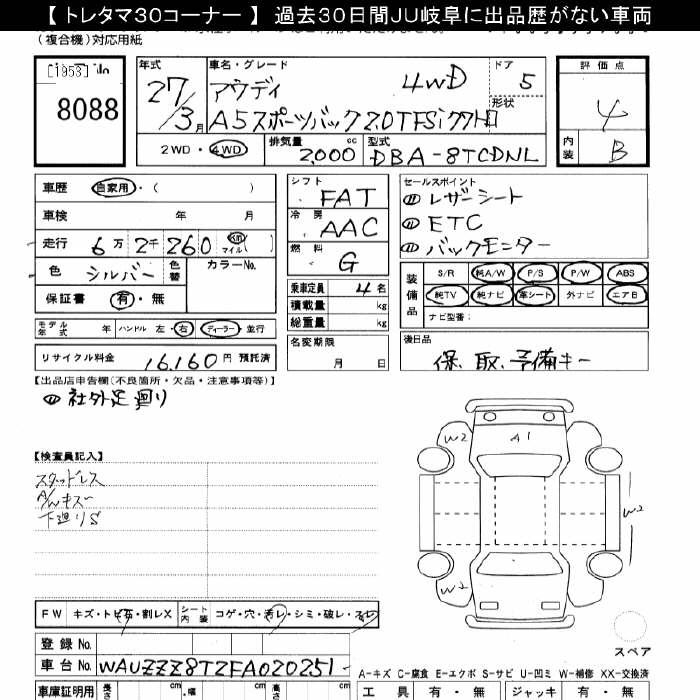 【 トレタマ30コーナー 】 過去30日間JU岐阜に出品歴がない車両
(複合機)対応用紙
8088
年式 27/3月
車名・グレード アウディ 4WD
A5スポーツバック2.0TFSiクワトロ
ドア 5
形状
評価点 4
内装 B
2WD・4WD
排気量 2,000 cc
型式 DBA-8TCDNL
車歴 自家用・( )
車検 年 月
走行 6万2千260 km マイル( )
色 シルバー 色替 カラーNo.
保証書 有・無
モデル年式 年 ハンドル 左・右 ディーラー・並行
リサイクル料金 16,160円 預託済
シフト FAT
冷房 AAC
燃料 G
乗車定員 4名
積載量 kg
総重量 kg
名変期限
月 日
セールスポイント
① レザーシート
② ETC
③ バックモニター
装備品
S/R 純A/W P/S P/W ABS
純TV 純ナビ 革シート 外ナビ エアB
ナビ型番:
後日品
保、取、予備キー
【出品店申告欄(不良箇所・欠品・注意事項等)】
① 社外足廻り
【検査員記入】
スタッドレス
A/Wキズ
下廻りS
W2
A1
W2
W2
W2
スペア
FW キズ・トビ石・割レX
シート内装 コゲ・穴・汚レ・シミ・破レ・スレ
登録No.
車台No. WAUZZZ8TZFA020251
A-キズ C-腐食 E-エクボ S-サビ U-凹ミ W-補修 XX-交換済
車庫証明用 長さ cm ・幅 cm cm
工具 有・無 ジャッキ 有・無